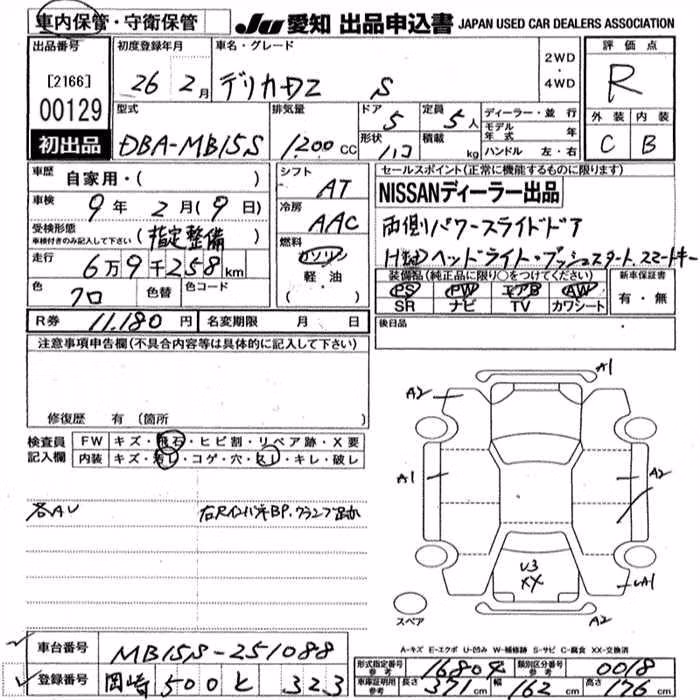 車内保管・守衛保管 JU 愛知 出品申込書 JAPAN USED CAR DEALERS ASSOCIATION
出品番号 初度登録年月 車名・グレード 2WD・4WD 評価点
[2166] 26年 2月 デリカD2 S R
00129
型式 排気量 ドア 定員 ディーラー・並行 外装 内装
初出品 DBA-MB15S 1200 CC 5 5人 モデル年式 年 C B
形状 積載
ハコ kg ハンドル 左・右
車歴 自家用・( ) シフト AT セールスポイント(正常に機能するものに限ります)
NISSANディーラー出品
車検 9年 2月(9日) 冷房 AAC
両側パワースライドドア
受検形態 車検付きのみ記入して下さい (指定整備) 燃料 ガソリン・軽油 ( )
HIDヘッドライト・プッシュスタート、スマートキー
走行 6万9千258km
装備品(純正品に限り○をつけてください) 新車保証書
PS PW エアB AW 有・無
SR ナビ TV カワシート
色 クロ 色替 色コード
R券 11,180円 名変期限 月 日 後日品
注意事項申告欄(不具合内容等は具体的に記入して下さい)
修復歴 有 (箇所 )
検査員記入欄 FW キズ・飛石・ヒビ割・リペア跡・X要
内装 キズ・汚レ・コゲ・穴・スレ・キレ・破レ
各AU
A1
A2
A2
A1
A2
U3
XX
UA1
スペア
A-キズ E-エクボ U-凹み W-補修跡 S-サビ C-腐食 XX-交換済
車台番号 MB15S-251088
登録番号 岡崎 500 と 323
形式指定番号 参考 16804 類別区分番号 参考 0018
車庫証明用 参考 長さ 371cm 幅 162cm 高さ 176cm